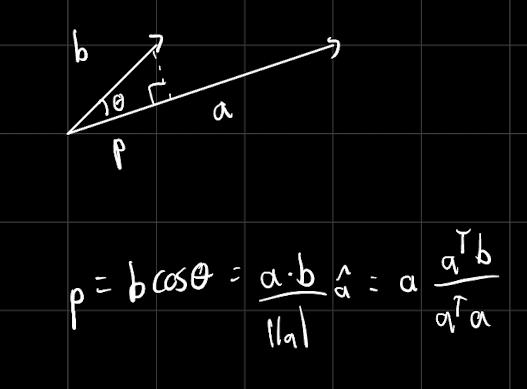 b
θ
a
p
p = b cosθ = a·b / ||a|| â = a aᵀb / aᵀa